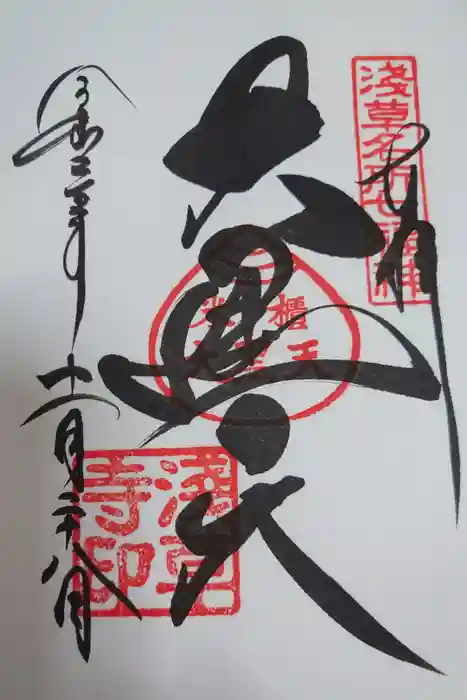 奉拝
浅草名所七福神
大黒天
米櫃大黒天
浅草寺印
令和二年
十一月二十八日